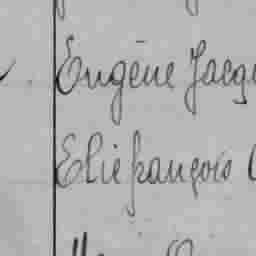 Eugène Jacq
Elie françois